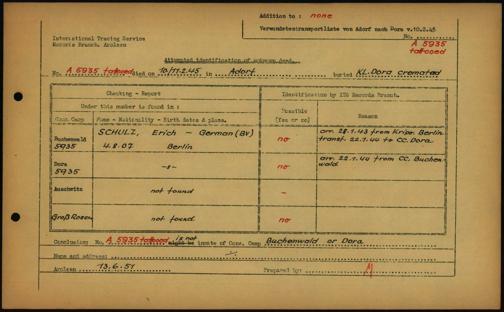 Addition to : none
International Tracing Service
Records Branch. Arolsen
Verwundetentransportliste von Adorf nach Dora v.10.2.45
No. A 5935
tattooed
Attempted identification of unknown dead.
No. A 5935 tattooed died on 10/11.2.45 in Adorf buried KL-Dora cremated
Checking - Report
Identification by ITS Records Branch.
Under this number is found in :
Possible
(Yes or no)
Reason
Conc. Camp
Name - Nationality - Birth dates & place.
Buchenwald
5935
SCHULZ, Erich - German (BV)
4.8.07 Berlin
no
arr. 28.1.43 from Kripo. Berlin
transf. 22.1.44 to CC. Dora.
Dora
5935
-"-
no
arr. 22.1.44 from CC. Buchen-
wald.
Auschwitz
not found
-
Groß Rosen
not found
no
Conclusion: No. A 5935 tattooed is not might be inmate of Conc. Camp Buchenwald or Dora.
Name and address :
Arolsen 13.6.51
Prepared by: